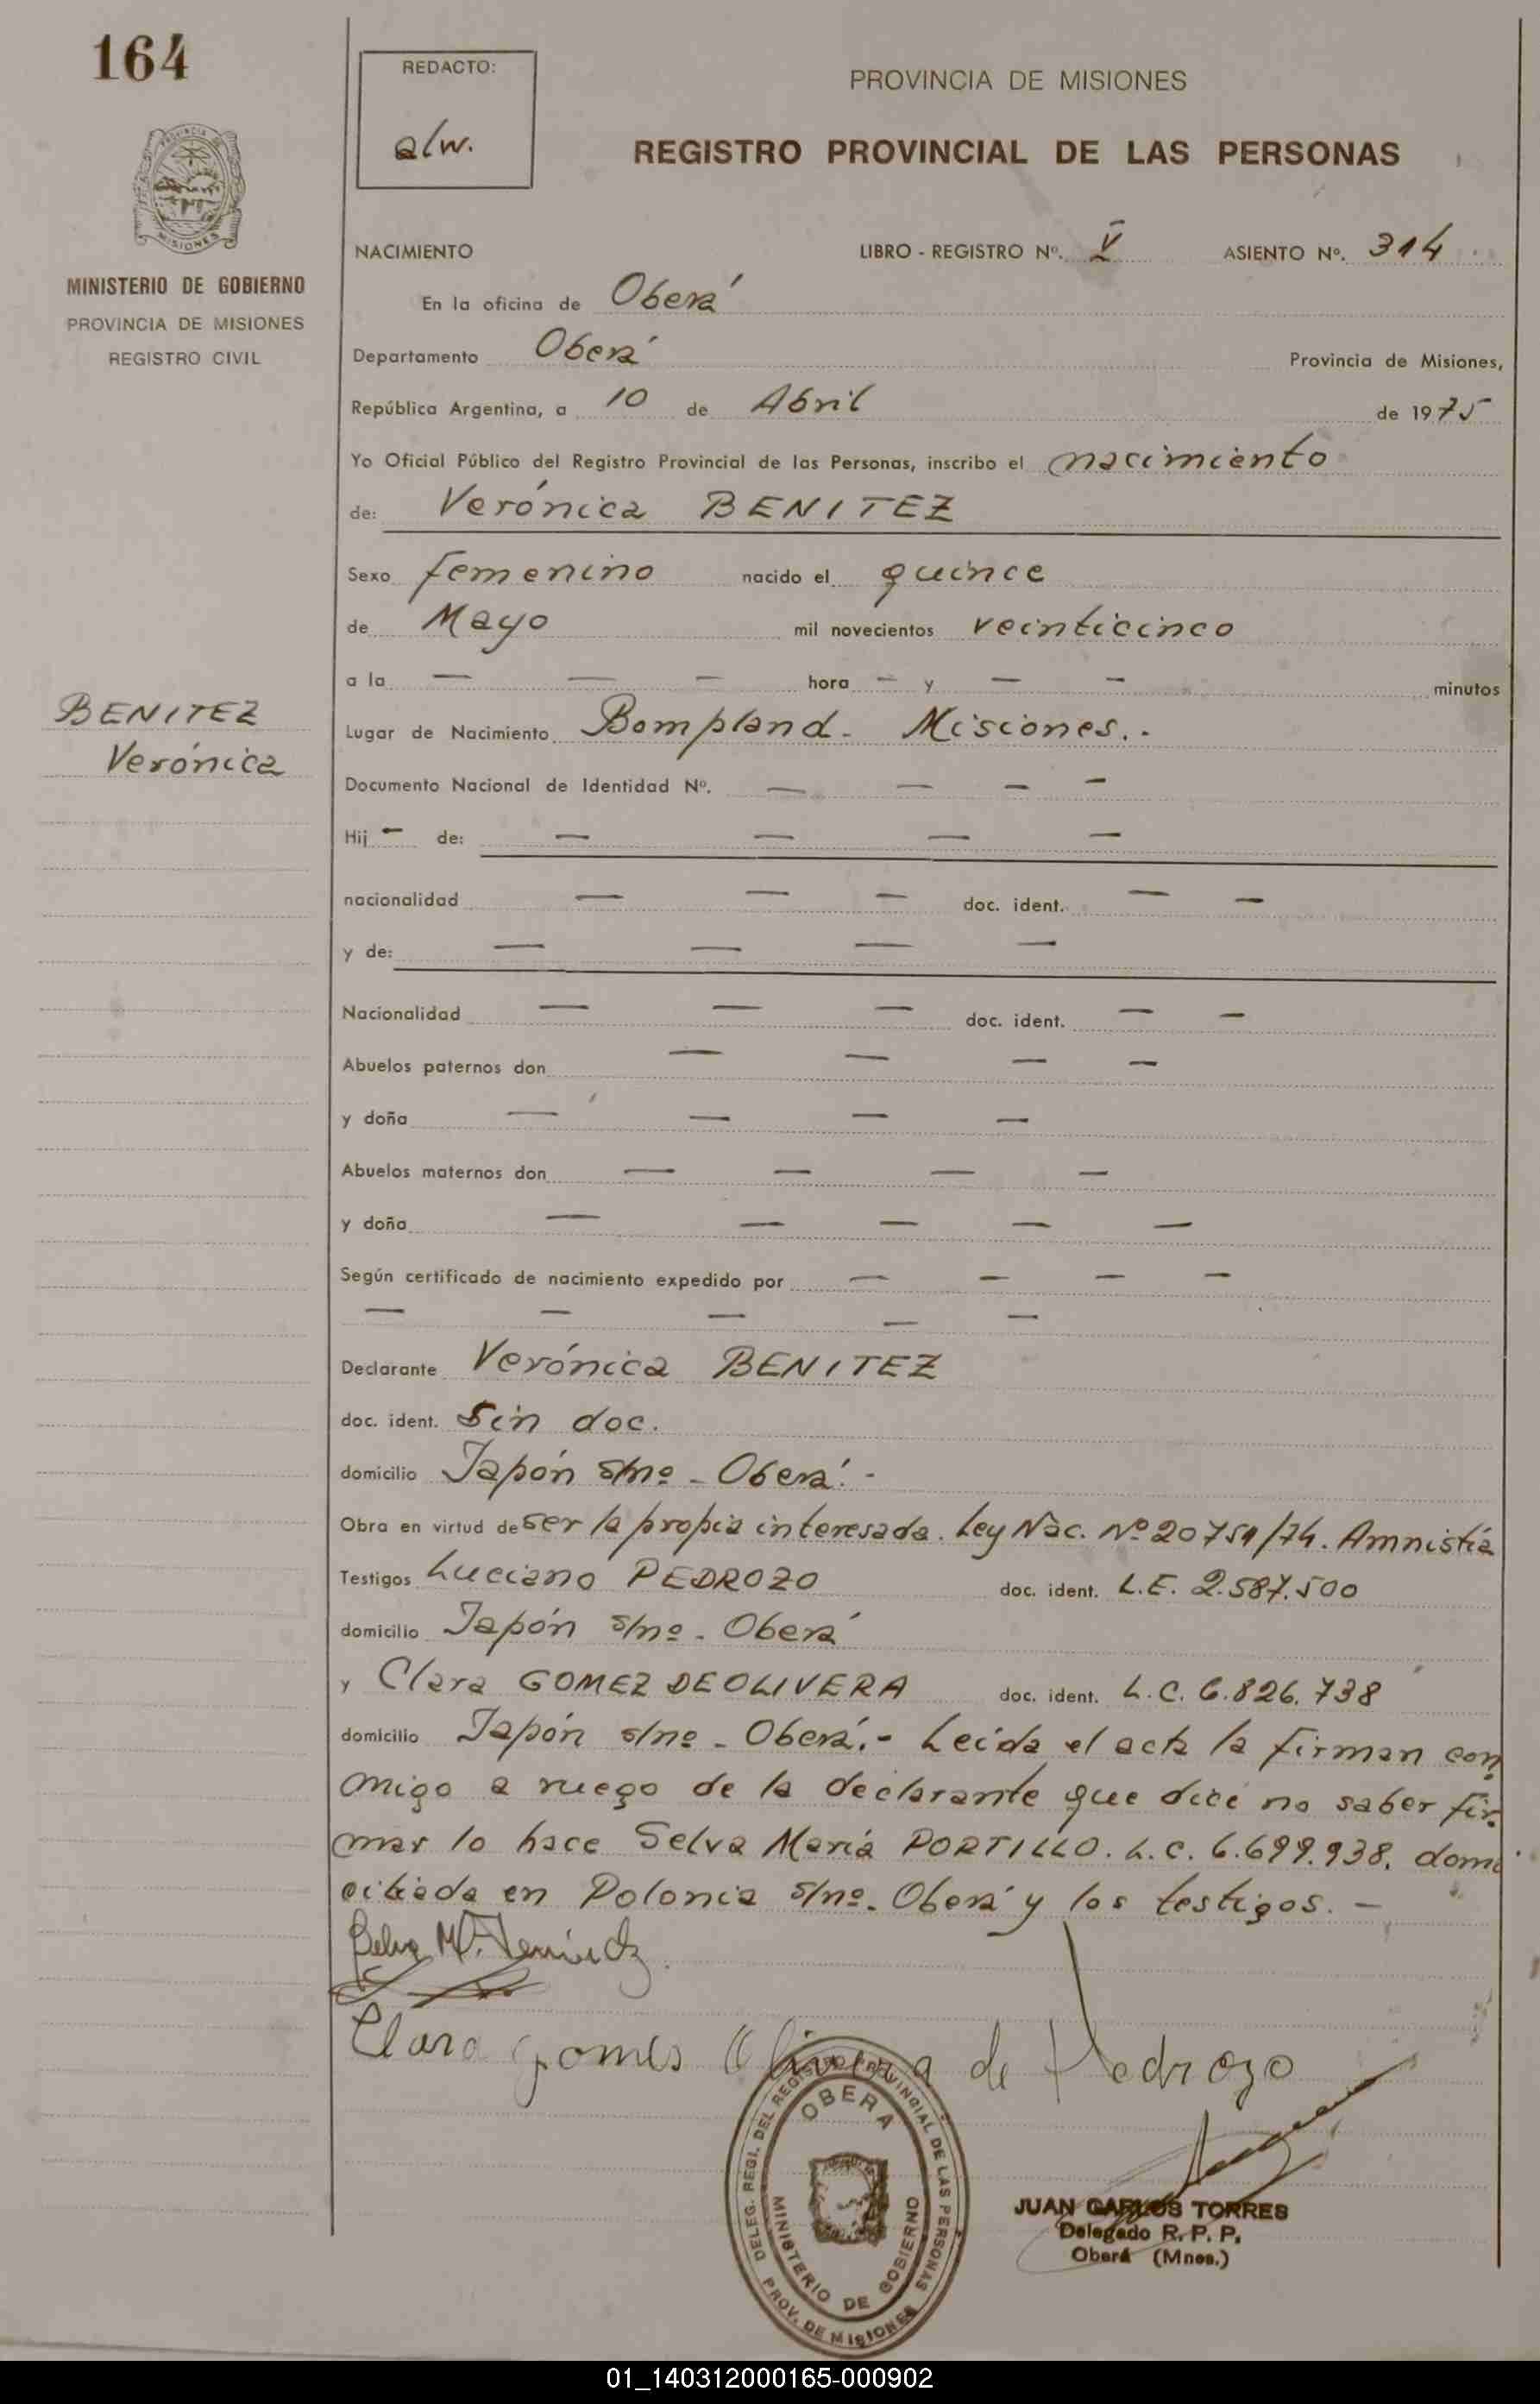 164
REDACTO:
alw.
PROVINCIA DE MISIONES
REGISTRO PROVINCIAL DE LAS PERSONAS
MISIONES
MINISTERIO DE GOBIERNO
PROVINCIA DE MISIONES
REGISTRO CIVIL
NACIMIENTO LIBRO - REGISTRO Nº. V ASIENTO Nº. 314
En la oficina de Oberá
Departamento Oberá Provincia de Misiones,
República Argentina, a 10 de Abril de 1975
Yo Oficial Público del Registro Provincial de las Personas, inscribo el nacimiento
de: Verónica BENITEZ
Sexo femenino nacido el quince
de Mayo mil novecientos veinticinco
a la — — — hora — y — — minutos
BENITEZ
Verónica
Lugar de Nacimiento Bompland - Misiones.-
Documento Nacional de Identidad Nº. — — — —
Hij — de: — — — —
nacionalidad — — — doc. ident. — —
y de: — — — —
Nacionalidad — — — doc. ident. — —
Abuelos paternos don — — — —
y doña — — — —
Abuelos maternos don — — — —
y doña — — — — —
Según certificado de nacimiento expedido por — — — —
— — — — —
Declarante Verónica BENITEZ
doc. ident. Sin doc.
domicilio Japón s/nº - Oberá.-
Obra en virtud de ser la propia interesada. Ley Nac. Nº 20751/74. Amnistía
Testigos Luciano PEDROZO doc. ident. L.E. 2.587.500
domicilio Japón s/nº - Oberá
y Clara GOMEZ DE OLIVERA doc. ident. L.C. 6.826.738
domicilio Japón s/nº - Oberá.- Leída el acta la firman con
migo a ruego de la declarante que dice no saber fir
mar lo hace Selva María PORTILLO. L.C. 6.699.938. domi
ciliada en Polonia s/nº. Oberá y los testigos. —
Selva M.
Clara gomes Olivera de Pedrozo
DELEG. REGI. DEL REGISTRO PROVINCIAL DE LAS PERSONAS
OBERA
MINISTERIO DE GOBIERNO
PROV. DE MISIONES
JUAN CARLOS TORRES
Delegado R. P. P.
Oberá (Mnes.)
01_140312000165-000902